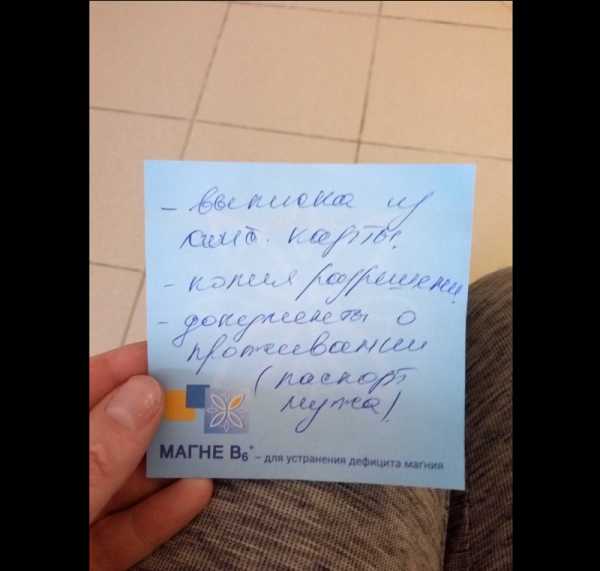 - выписка из
амб. карты.
- копия разрешени
- документы о
проживании
(паспорт
мужа)
МАГНЕ В6® – для устранения дефицита магния